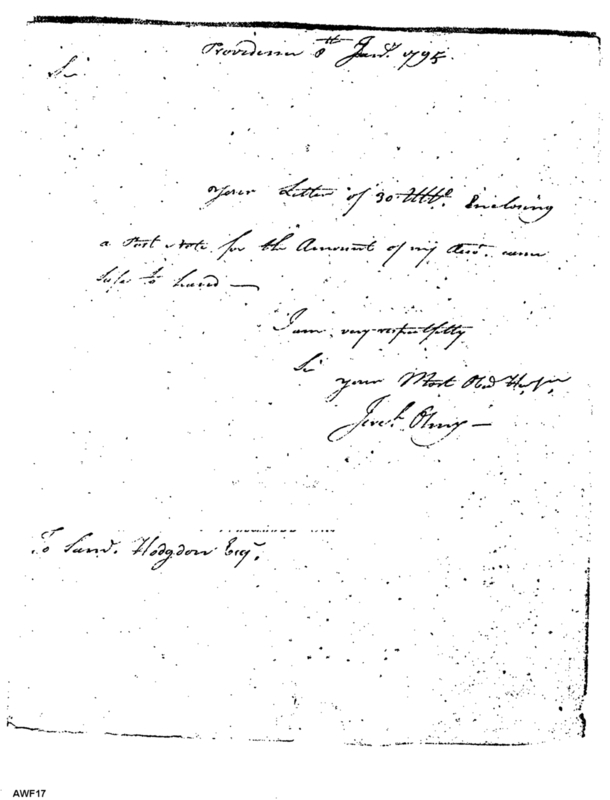 Providence 8th Jany. 1795.
Sir
Your Letter of 30 Ulto. Enclosing
a Post Note for the Amount of my Acco. came
safe to hand —
I am, very respectfully
Sir
your Most Obd. Hu Ser
Jereh. Olney —
To Saml. Hodgdon Esqr.
AWF17